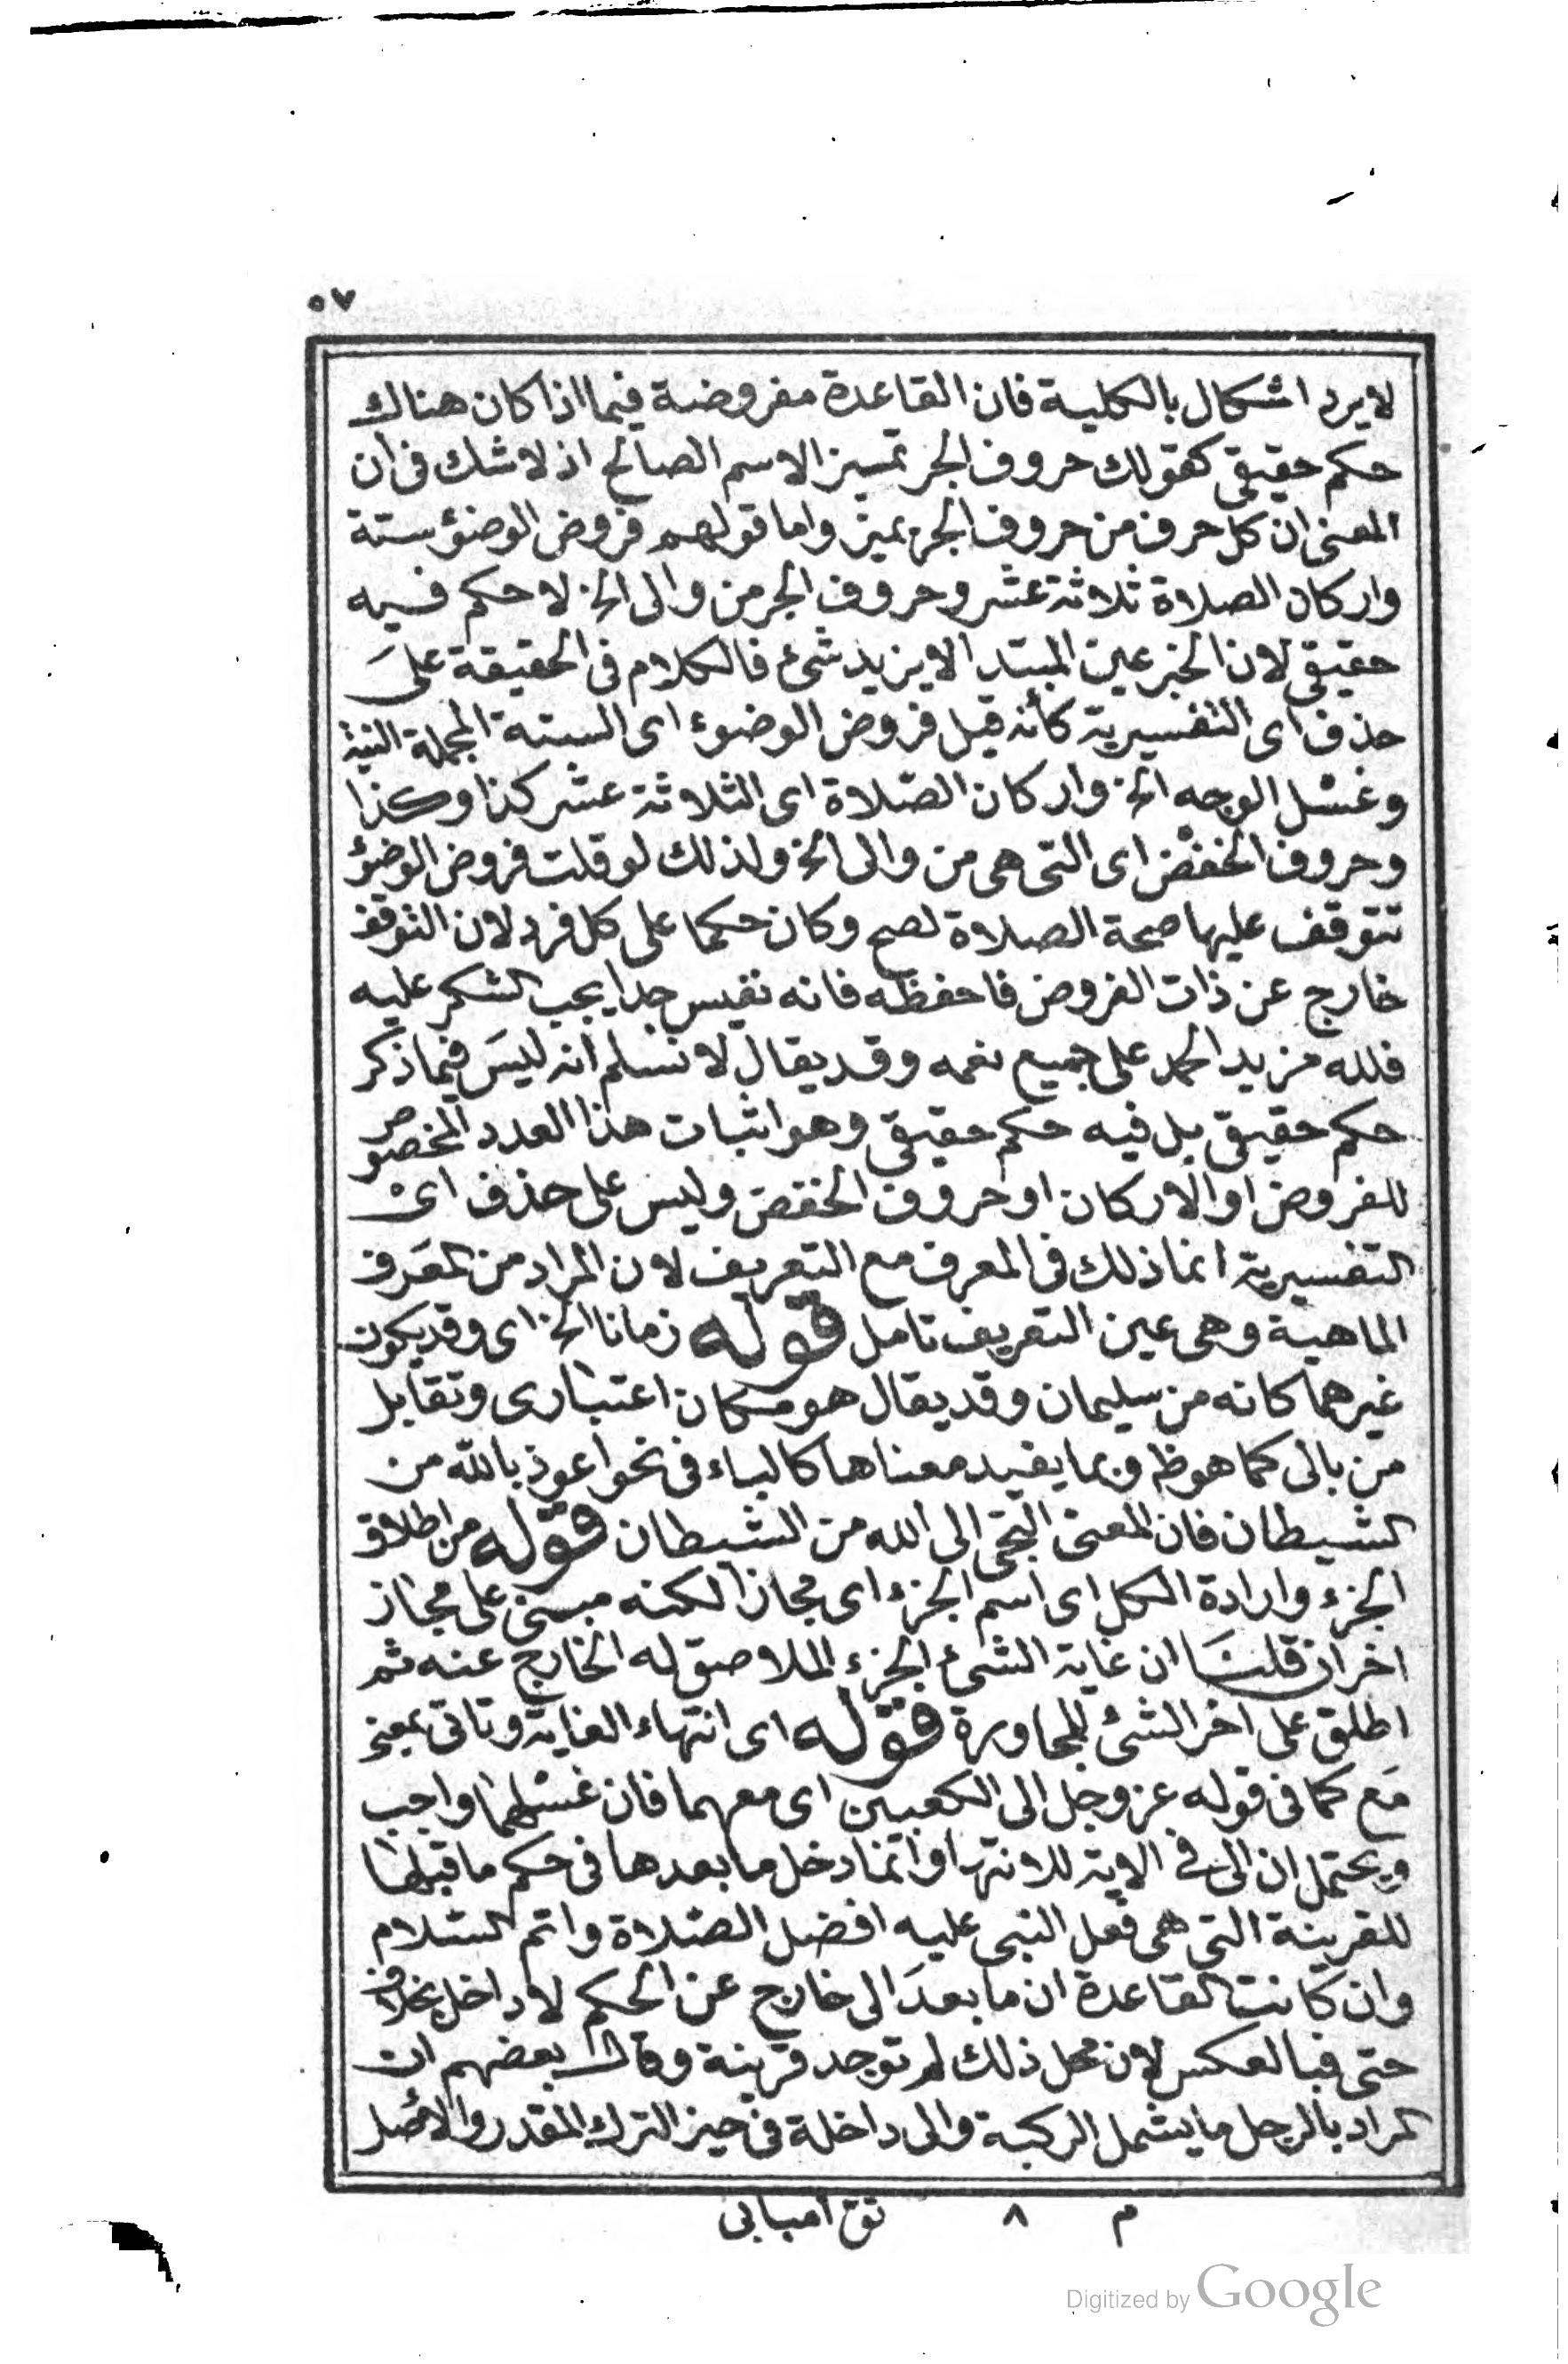 ٥٧
لا يرد اشكال بالكلية فان القاعدة مفروضة فيما اذا كان هناك
حكم حقيقى كقولك حروف الجر تميز الاسم الصالح اذ لا شك فى ان
المعنى ان كل حرف من حروف الجر يميز واما قولهم فروض الوضوء ستة
واركان الصلاة ثلاثة عشر وحروف الجر من والى الخ لا حكم فيه
حقيقى لان الخبر عين المبتدا لا يزيد شئ فالكلام فى الحقيقة على
حذف اى التفسيرية كأنه قيل فروض الوضوء اى الستة المجملة النية
وغسل الوجه الخ واركان الصلاة اى الثلاثة عشر كذا وكذا
وحروف الخفض اى التى هى من والى الخ ولذلك لو قلت فروض الوضوء
تتوقف عليها صحة الصلاة لصح وكان حكما على كل فرد لان التوقف
خارج عن ذات الفروض فاحفظه فانه نفيس جدا يجب الشكر عليه
فلله مزيد الحمد على جميع نعمه وقد يقال لا نسلم انه ليس فيما ذكر
حكم حقيقى بل فيه حكم حقيقى وهو اثبات هذا العدد المخصوص
للفروض او الاركان او حروف الخفض وليس على حذف اى
التفسيرية انما ذلك فى المعرف مع التعريف لان المراد من المعرف
الماهية وهى عين التعريف تامل قوله زمانا الخ اى وقد يكون
غيرهما كانه من سليمان وقد يقال هو مكان اعتبارى وتقابل
من بالى كما هو ظ وبما يفيد معناها كالباء فى نحو اعوذ بالله من
الشيطان فان المعنى التجئ الى الله من الشيطان قوله من اطلاق
الجزء وارادة الكل اى اسم الجزء اى مجازا لكنه مبنى على مجاز
اخر ان قلنا ان غاية الشئ الجزء الملاصق له الخارج عنه ثم
اطلق على اخر الشئ للمجاورة قوله اى انتهاء الغاية وتاتى بمعنى
مع كما فى قوله عز وجل الى الكعبين اى معهما فان غسلهما واجب
ويحتمل ان الى فى الاية للانتها وانما دخل ما بعدها فى حكم ما قبلها
للقرينة التى هى فعل النبى عليه افضل الصلاة واتم السلام
وان كانت القاعدة ان ما بعد الى خارج عن الحكم لا داخل بخلاف
حتى فبالعكس لان محل ذلك لم توجد قرينة وقال بعضهم ان
المراد بالرجل ما يشمل الركبة والى داخلة فى حيز الترك المقدر والاصل
م ٨ تق امبابى
Digitized by Google